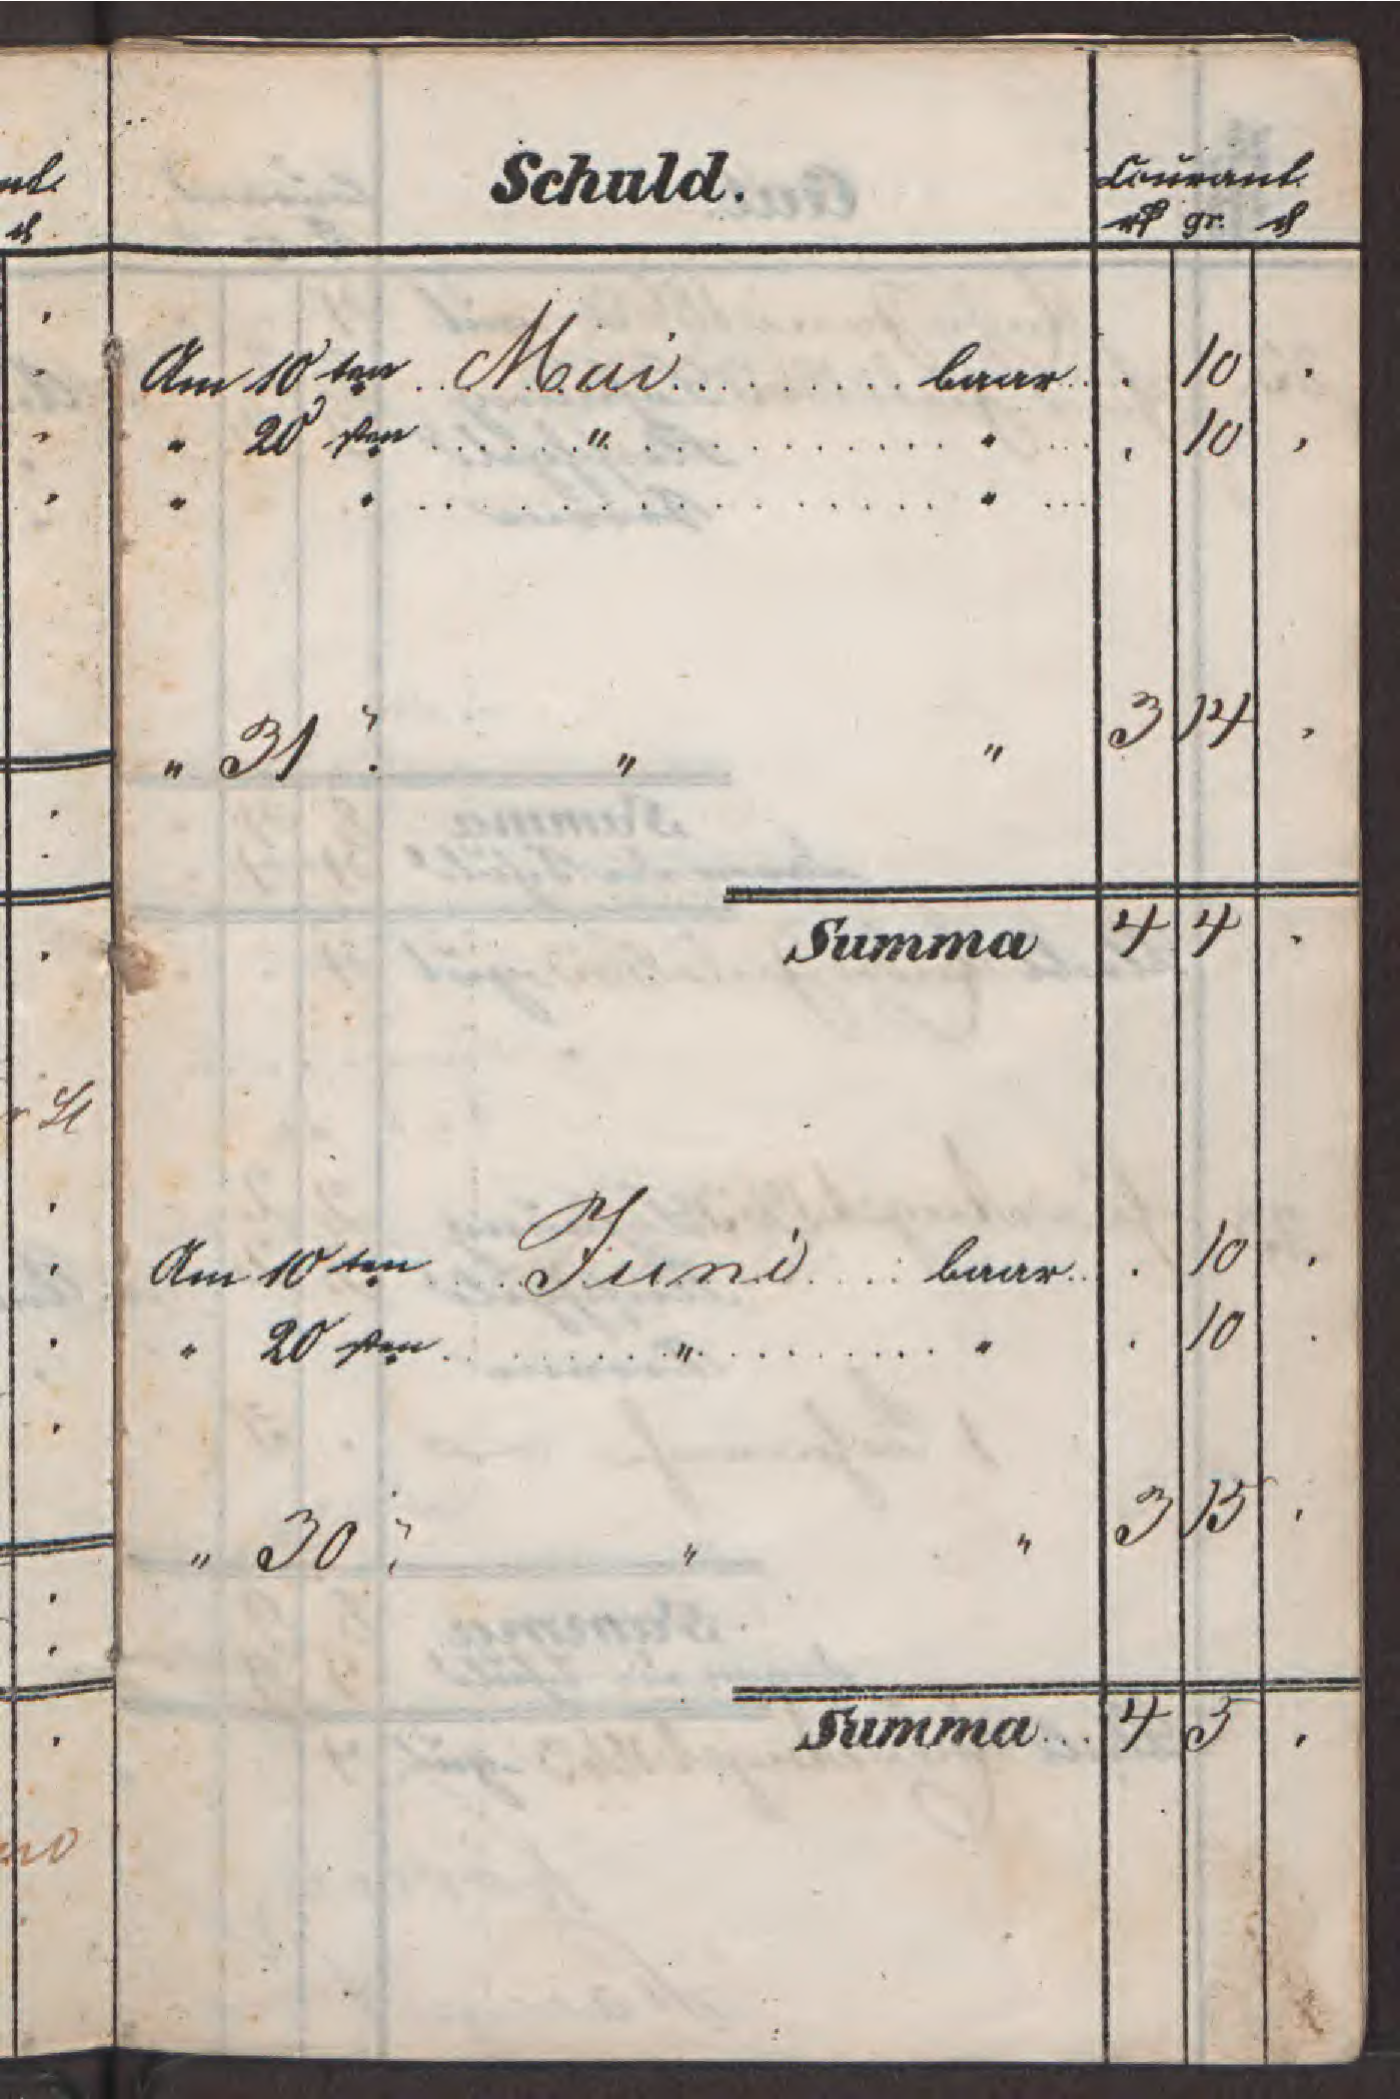 Schuld.
Courant.
rℳ gr. ₰
Am 10ten .. Mai ......... baar . . 10 .
" 20sten ...... " ........... " ... . 10 .
" " ................. " ...
" 31 " " 3 14 .
Summa 4 4 .
Am 10ten .... Juni .... baar .. . 10 .
" 20sten ........ " ........ " . 10 .
" 30 " " 3 15 .
Summa ... 4 5 .